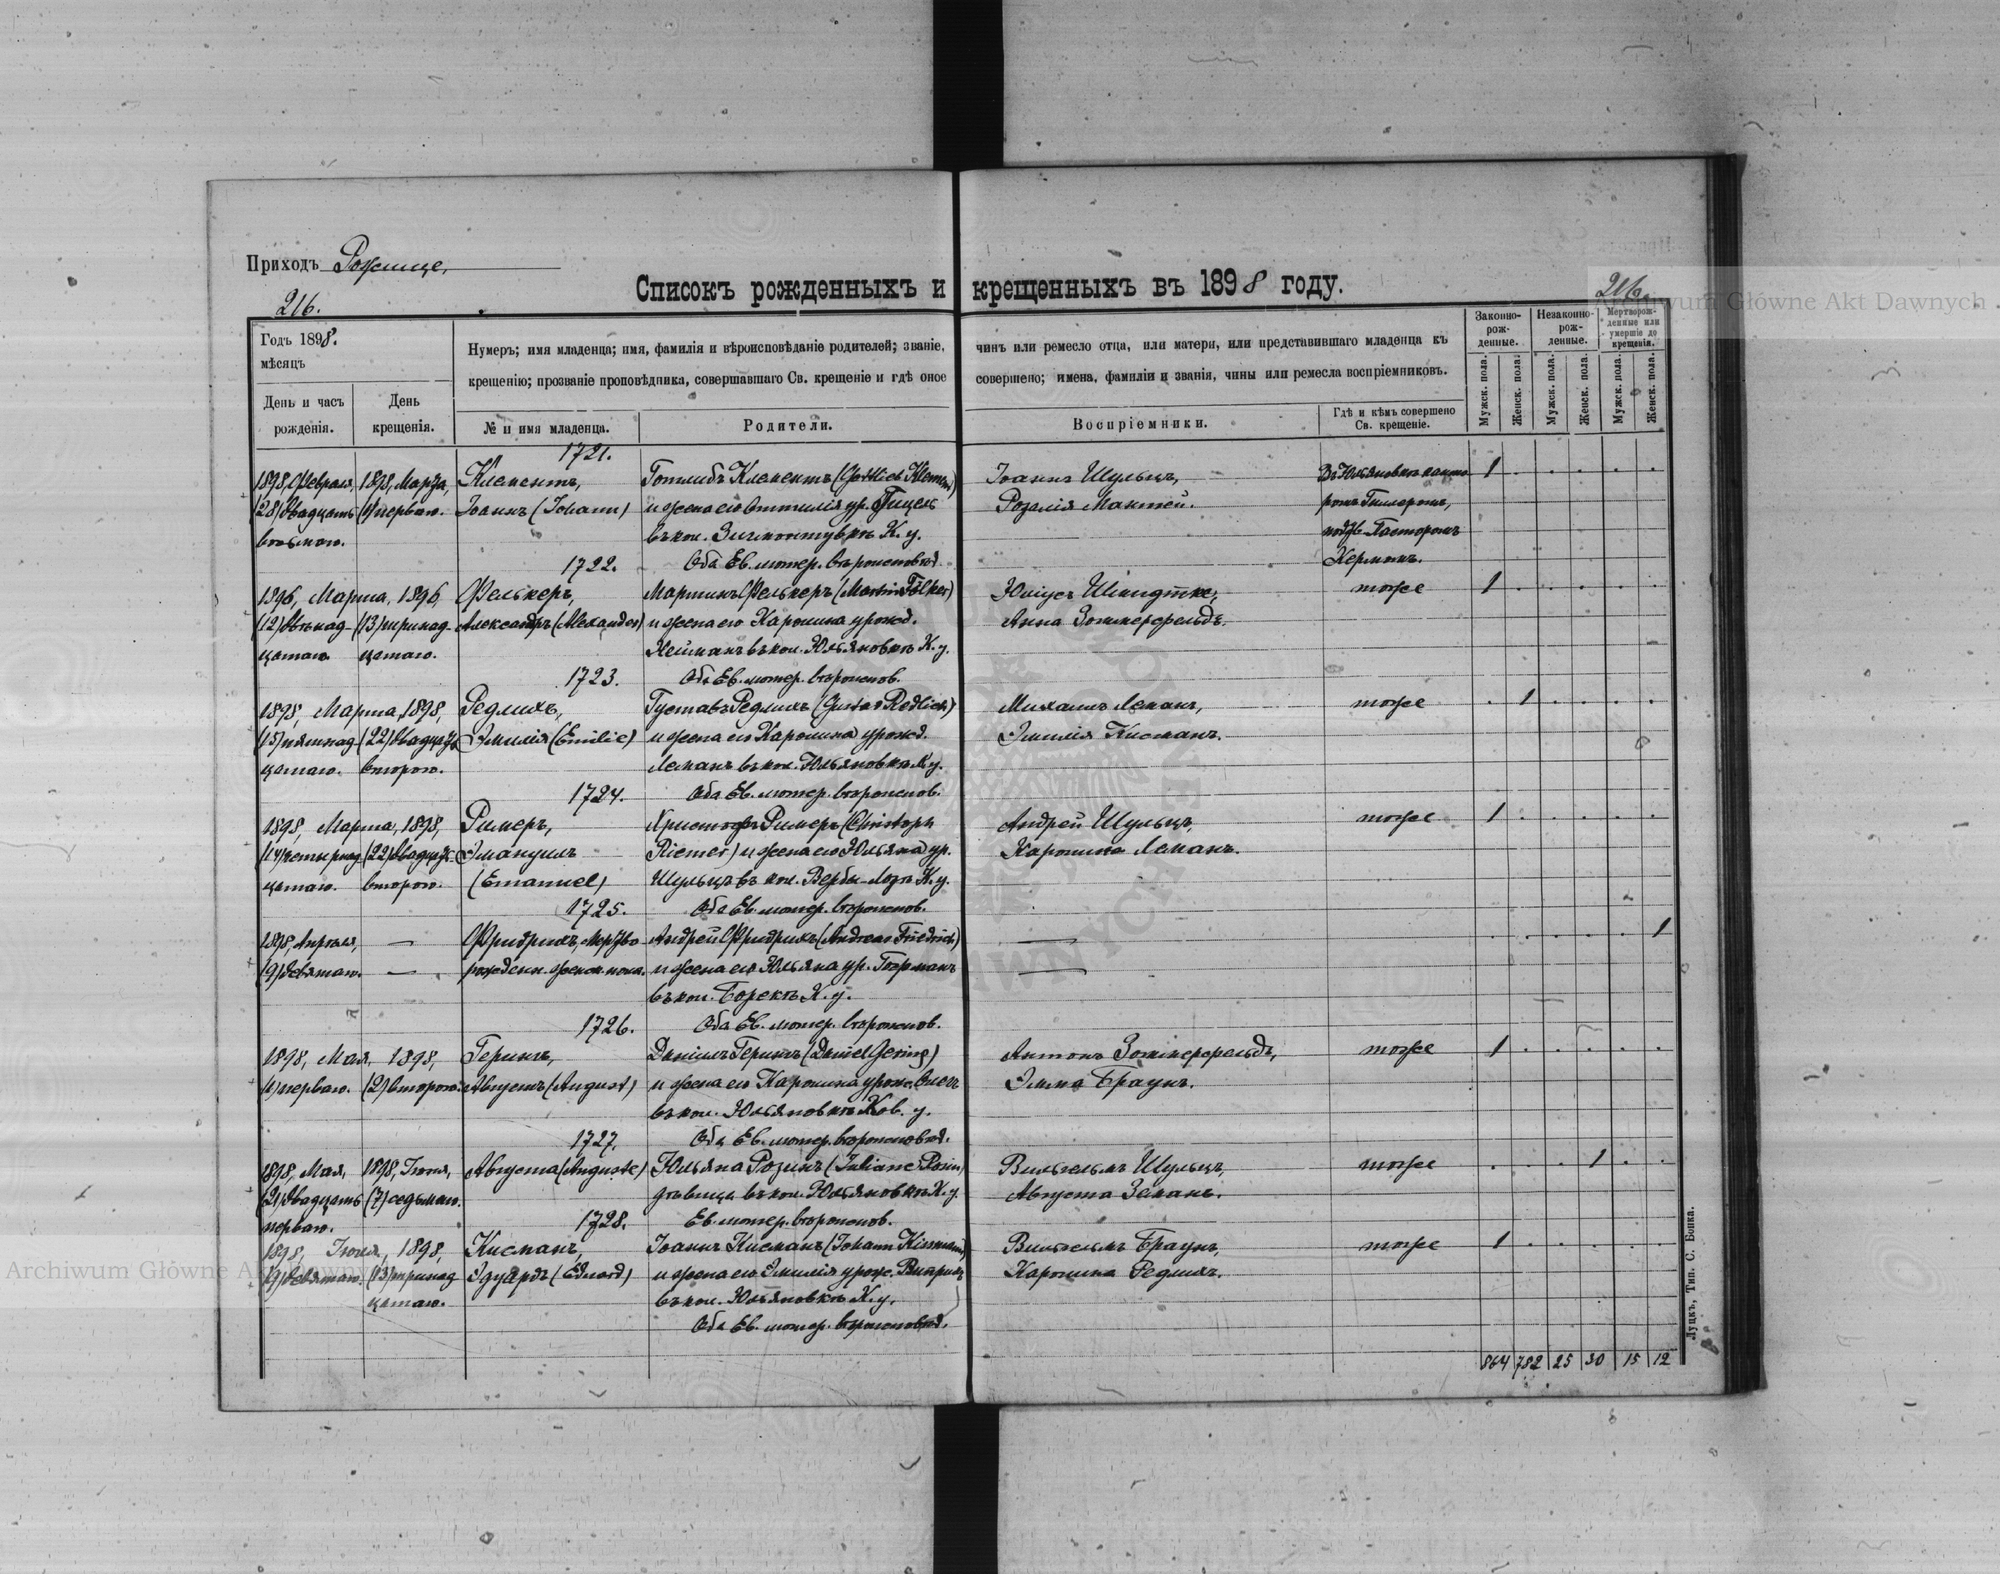 Приходъ Рожище,
216.
Списокъ рожденныхъ и крещенныхъ въ 1898 году.
216.
Archiwum Główne Akt Dawnych
Годъ 1898.
мѣсяцъ
День и часъ рожденія.
День крещенія.
Нумеръ; имя младенца; имя, фамилія и вѣроисповѣданіе родителей; званіе, чинъ или ремесло отца, или матери, или представившаго младенца къ
крещенію; прозваніе проповѣдника, совершавшаго Св. крещеніе и гдѣ оное совершено; имена, фамиліи и званія, чины или ремесла воспріемниковъ.
№ и имя младенца.
Родители.
Воспріемники.
Гдѣ и кѣмъ совершено Св. крещеніе.
Законно-рож-денные.
Незаконно-рож-денные.
Мертворож-денные или умершіе до крещенія.
Мужск. пола.
Женск. пола.
Мужск. пола.
Женск. пола.
Мужск. пола.
Женск. пола.
1721.
1898, Февраля, 1898, Марта, Клементъ, Готлибъ Клементъ (Gottlieb Klement) Іоаннъ Шульцъ, Въ Юльяновкѣ канто- 1
(28) двадцать (1) перваго. Іоаннъ (Johann) и жена его Оттилія ур. Розалія Мантей. ромъ
восьмого. въ кол. К. у. подтв. Пасторомъ
1722. Оба Ев. лютер. вѣроисповѣд. Керmомъ.
1896, Марта, 1896, Фелькеръ, Мартинъ Фелькеръ (Martin Fölker) Юліусъ тоже 1
(12) двѣнад- (13) тринад- Александръ (Alexander) и жена его Каролина урожд. Анна Зоммерфельдъ.
цатаго. цатаго. Нейманъ въ кол. Юльяновкѣ К. у.
1723. Оба Ев. лютер. вѣроиспов.
1898, Марта, 1898, Редлихъ, Густавъ Редлихъ (Gustav Redlich) Михаилъ Леманъ, тоже 1
(15) пятнад- (22) двадцать Эмилія (Emilie) и жена его Каролина урожд. Эмилія Кисманъ.
цатаго. второго. Леманъ въ кол. Юльяновкѣ К. у.
1724. Оба Ев. лютер. вѣроиспов.
1898, Марта, 1898, Римеръ, Христофъ Римеръ (Christoph Андрей Шульцъ, тоже 1
(14) четырнад- (22) двадцать Эмануилъ Riemer) и жена его Юльяна ур. Каролина Леманъ.
цатаго. второго. (Emanuel) Шульцъ въ кол. Вербы-Лозѣ К. у.
1725. Оба Ев. лютер. вѣроиспов.
1898, Апрѣля, — Фридрихъ, мертво Андрей Фридрихъ (Andreas Friedrich) — 1
(9) девятаго. — рожденн. женск. пола. и жена его Юльяна ур. Гофманъ —
въ кол. Борекъ К. у.
1726. Оба Ев. лютер. вѣроиспов.
1898, Мая, 1898, Герингъ, Даніилъ Герингъ (Daniel Gering) Антонъ Зоммерфельдъ, тоже 1
(1) перваго. (2) второго. Августъ (August) и жена его Каролина урож. Эмма Браунъ.
въ кол. Юльяновкѣ Ков. у.
1727. Оба Ев. лютер. вѣроисповѣд.
1898, Мая, 1898, Іюня, Августа (Auguste) Юльяна Розинъ (Juliane Rosin) Вильгельмъ Шульцъ, тоже 1
(21) двадцать (7) седьмаго. дѣвица въ кол. Юльяновкѣ К. у. Августа Земанъ.
перваго. 1728. Ев. лютер. вѣроиспов.
1898, Іюня, 1898, Кисманъ, Іоаннъ Кисманъ (Johann Kissmann) Вильгельмъ Браунъ, тоже 1
(9) девятаго. (13) тринад- Эдуардъ (Eduard) и жена его Эмилія урож. Каролина Редлихъ.
цатаго. въ кол. Юльяновкѣ К. у.
Оба Ев. лютер. вѣроисповѣд.
864 782 25 30 15 12
Луцкъ, Тип. С. Бонка.
Archiwum Główne Akt Dawnych